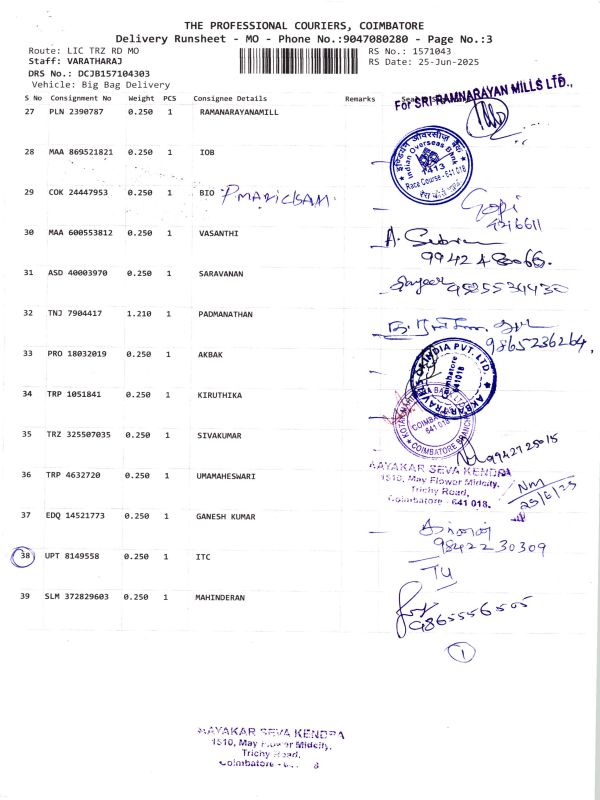 THE PROFESSIONAL COURIERS, COIMBATORE
Delivery Runsheet - MO - Phone No.:9047080280 - Page No.:3
Route: LIC TRZ RD MO
RS No.: 1571043
Staff: VARATHARAJ
RS Date: 25-Jun-2025
DRS No.: DCJB157104303
Vehicle: Big Bag Delivery
S No Consignment No Weight PCS Consignee Details Remarks
For SRI RAMNARAYAN MILLS LTD.,
27 PLN 2390787 0.250 1 RAMANARAYANAMILL
28 MAA 869521821 0.250 1 IOB
इण्डियन ओवरसीज़ बैंक
Indian Overseas Bank
1413
Race Course - 641 018
29 COK 24447953 0.250 1 BIO P. MARICKAM
Gopi
30 MAA 600553812 0.250 1 VASANTHI
31 ASD 40003970 0.250 1 SARAVANAN
32 TNJ 7904417 1.210 1 PADMANATHAN
9865236264,
33 PRO 18032019 0.250 1 AKBAK
AKBAR TRAVELS OF INDIA PVT. LTD.
Coimbatore
641018
34 TRP 1051841 0.250 1 KIRUTHIKA
COIMBATORE BRANCH
641 018
35 TRZ 325507035 0.250 1 SIVAKUMAR
36 TRP 4632720 0.250 1 UMAMAHESWARI
AAYAKAR SEVA KENDRA
1510, May Flower Midcity,
Trichy Road,
Coimbatore - 641 018.
Nm
25/6/25
37 EDQ 14521773 0.250 1 GANESH KUMAR
9842230309
38 UPT 8149558 0.250 1 ITC
39 SLM 372829603 0.250 1 MAHINDERAN
9865556505
1
AAYAKAR SEVA KENDRA
1510, May Flower Midcity,
Trichy Road,